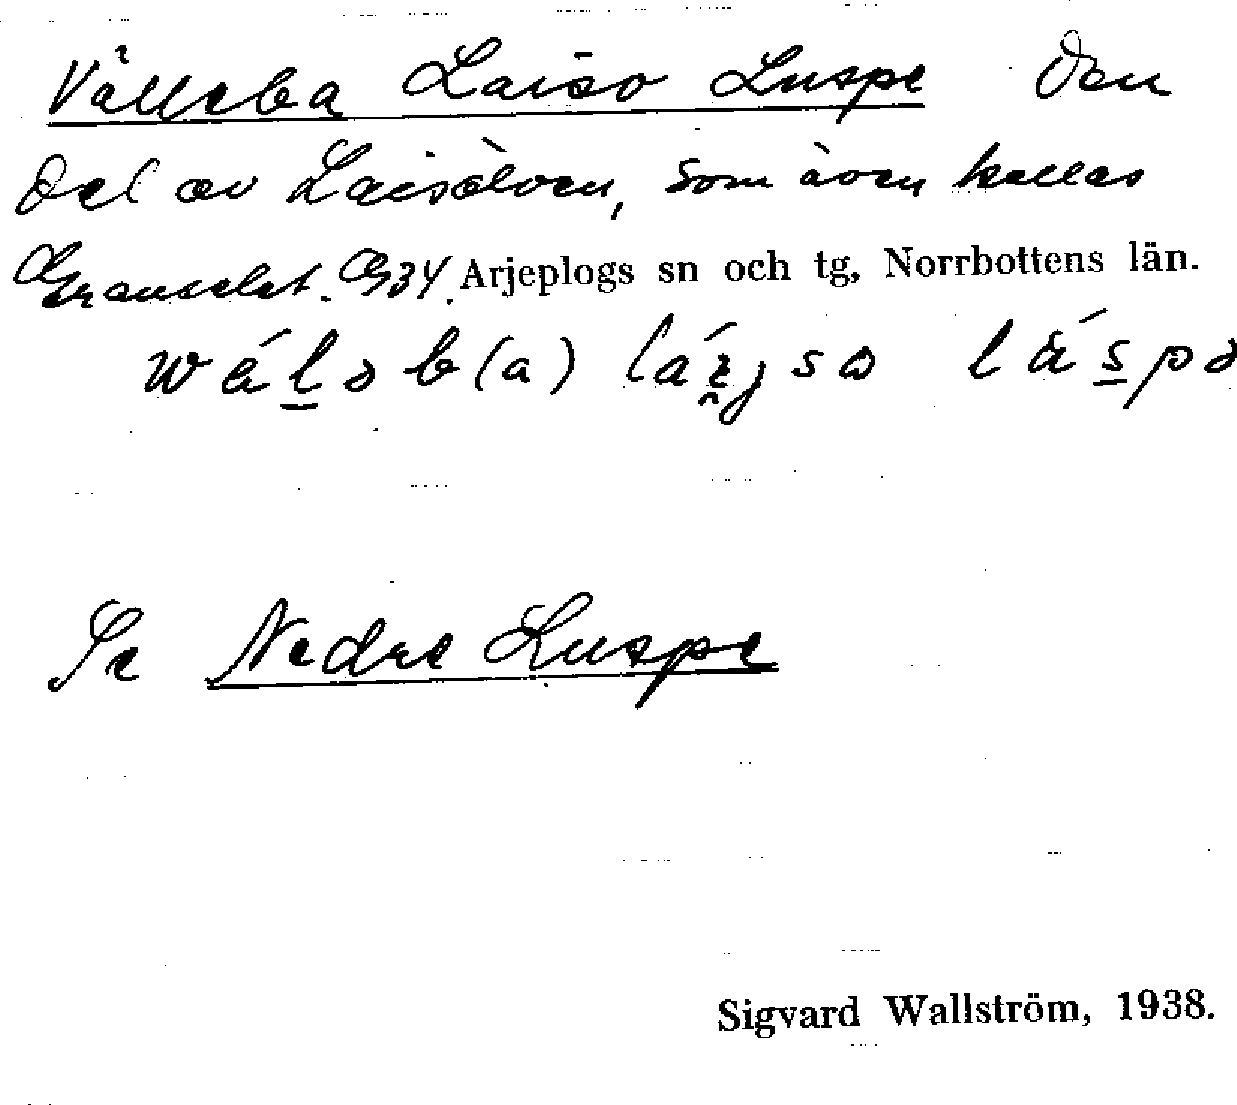 Välleba Laiso Luspe Den
del av Laisälven, som även kallas
Granselet. G34. Arjeplogs sn och tg, Norrbottens län.
Se Nedre Luspe
Sigvard Wallström, 1938.